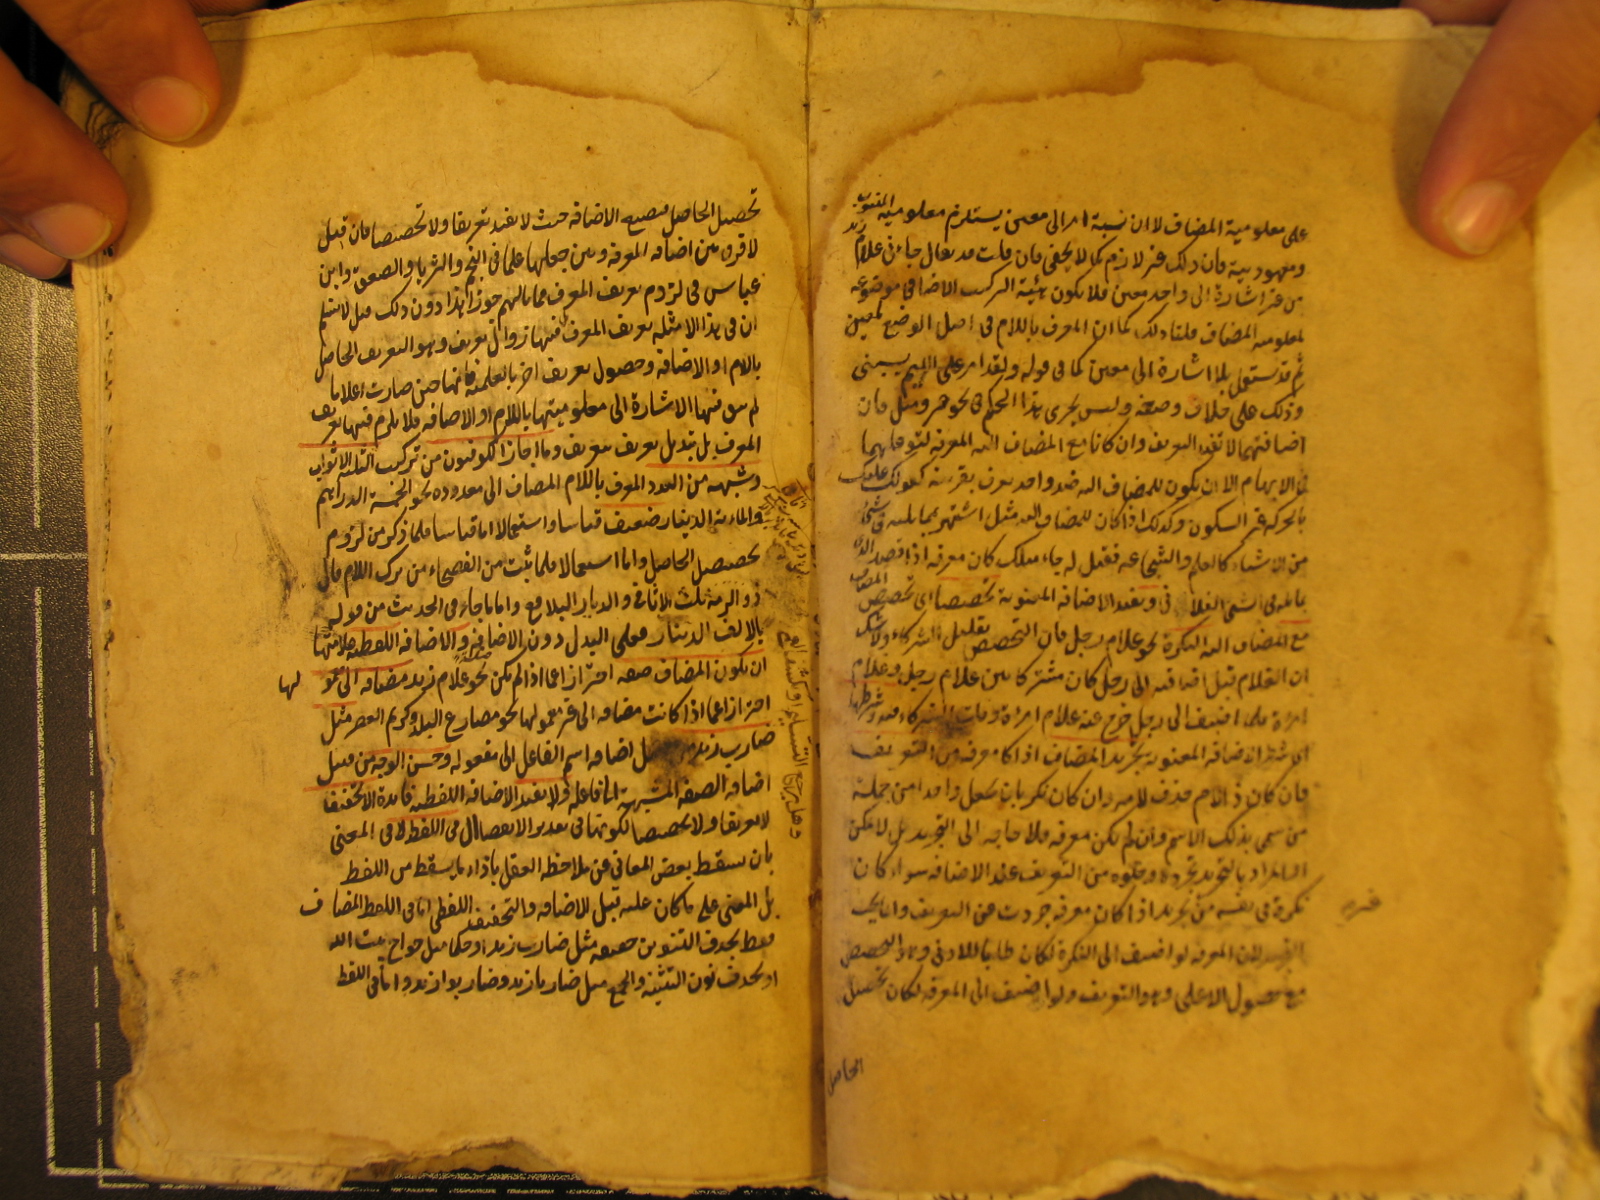 على معلومية المضاف لا ان نسبة امر الى معين يستلزم معلومية المنسوب
ومعهوديته فان ذلك غير لازم كما لا يخفى فان قلت قد يقال جاءنى غلام زيد
من غير اشارة الى واحد معين فلا يكون هيئة التركيب الاضافى موضوعة
لمعلومية المضاف قلنا ذلك كما ان المعرف باللام فى اصل الوضع لمعين
ثم قد يستعمل بلا اشارة الى معين كما فى قوله ولقد امر على اللئيم يسبنى
وذلك على خلاف وضعه وليس يجرى هذا الحكم فى نحو غير ومثل فان
اضافتهما لا تفيد التعريف وان كانا مع المضاف اليه المعرفة لتوغلهما
فى الابهام الا ان يكون للمضاف اليه ضد واحد يعرف بقرينة كقولك عليك
بالحركة غير السكون وكذلك اذا كان للمضاف اليه مثل اشتهر بمماثلته فى شئ
من الاشياء كالعلم والشجاعة فقيل له جاء مثلك كان معرفة اذا قصد الذى
يماثله فى الشئ الفلانى وتفيد الاضافة المعنوية تخصيصا اى تخصيص المضاف
مع المضاف اليه النكرة نحو غلام رجل فان التخصيص تقليل الشركاء ولا شك
ان الغلام قبل اضافته الى رجل كان مشتركا بين غلام رجل وغلام
امرأة فلما اضيف الى رجل خرج عنه غلام امرأة وقلت الشركاء فيه وشرطها
اى شرط الاضافة المعنوية تجريد المضاف اذا كان معرفة من التعريف
فان كان ذا لام حذف لامه وان كان نكر بان يجعل واحدا من جملة
من سمى بذلك الاسم وان لم يكن معرفة فلا حاجة الى التجريد بل لا يمكن
او المراد بالتجريد تجرده وخلوه من التعريف عند الاضافة سواء كان
نكرة فى نفسه من غير تجريد او كان معرفة جردت عن التعريف وانما يجب
التجريد لان المعرفة لو اضيف الى النكرة لكان طلبا للادنى وهو التخصيص
مع حصول الاعلى وهو التعريف ولو اضيف الى المعرفة لكان تحصيل
الحاصل
تحصيل الحاصل فتضيع الاضافة حيث لا تفيد تعريفا ولا تخصيصا فان قيل
لا فرق بين اضافة المعرفة وبين جعلها علما فى النجم والثريا والصعق وابن
عباس فى لزوم تعريف المعرف فما بالهم جوزوا هذا دون ذلك قيل لا نسلم
ان فى هذه الامثلة تعريف المعرف بل فيها زوال تعريف وهو التعريف الحاصل
باللام او الاضافة وحصول تعريف آخر بالعلمية فانها حين صارت اعلاما
لم يبق فيها الاشارة الى معلوميتها باللام او الاضافة فلا يلزم فيها تعريف
المعرف بل تبديل تعريف بتعريف وما اجازه الكوفيون من تركيب الثلثة الاثواب
وشبهه من العدد المعرف باللام المضاف الى معدوده نحو الخمسة الدراهم
والمائة الدينار ضعيف قياسا واستعمالا اما قياسا فلما ذكر من لزوم
تحصيل الحاصل واما استعمالا فلما ثبت من الفصحاء من ترك اللام قال
ذو الرمة ثلث الاثافى والديار البلاقع واما ما جاء فى الحديث من قوله
بالالف الدينار فعلى البدل دون الاضافة والاضافة اللفظية علامتها
ان يكون المضاف صفة احترازا عما اذا لم يكن نحو غلام زيد مضافة الى معمولها
احترازا عما اذا كانت مضافة الى غير معمولها نحو مصارع البلد وكريم العصر مثل
ضارب زيد من قبيل اضافة اسم الفاعل الى مفعوله وحسن الوجه من قبيل
اضافة الصفة المشبهة الى فاعلها ولا تفيد الاضافة اللفظية فائدة الا تخفيفا
لا تعريفا ولا تخصيصا لكونها فى تقدير الانفصال فى اللفظ لا فى المعنى
بان يسقط بعض المعانى عن ملاحظة العقل باذاء ما يسقط من اللفظ
بل المعنى على ما كان عليه قبل الاضافة والتخفيف اللفظى اما فى اللفظ المضاف
فقط بحذف التنوين حقيقة مثل ضارب زيد او حكما مثل حواج بيت الله
او بحذف نون التثنية والجمع مثل ضاربا زيد وضاربوا زيد واما فى اللفظ